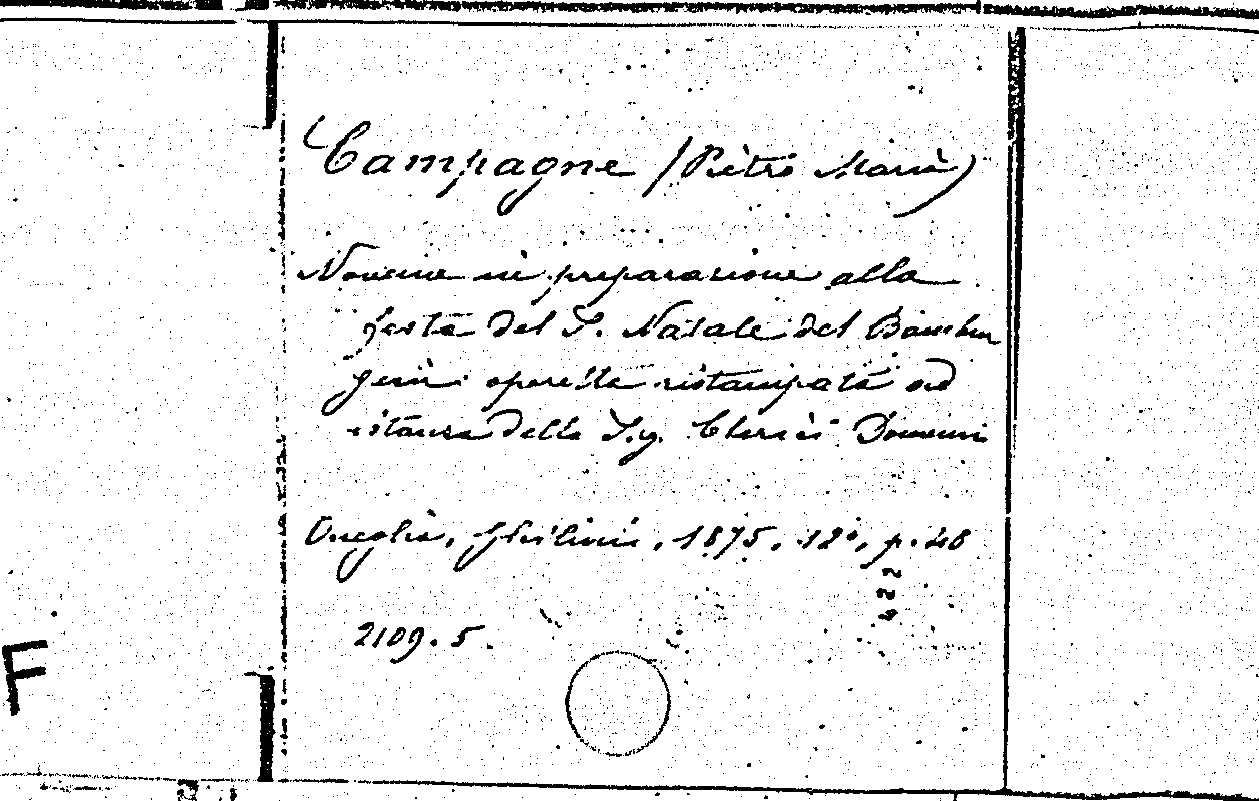 Campagne (Pietro Maria)
Novene in preparazione alla
festa del S. Natale del Bambin
gesù: operetta ristampata ad
istanza della Sig. Clerici Domeni
Oneglia, Ghilini, 1875, 12°, p. 48
422
2109.5.
F